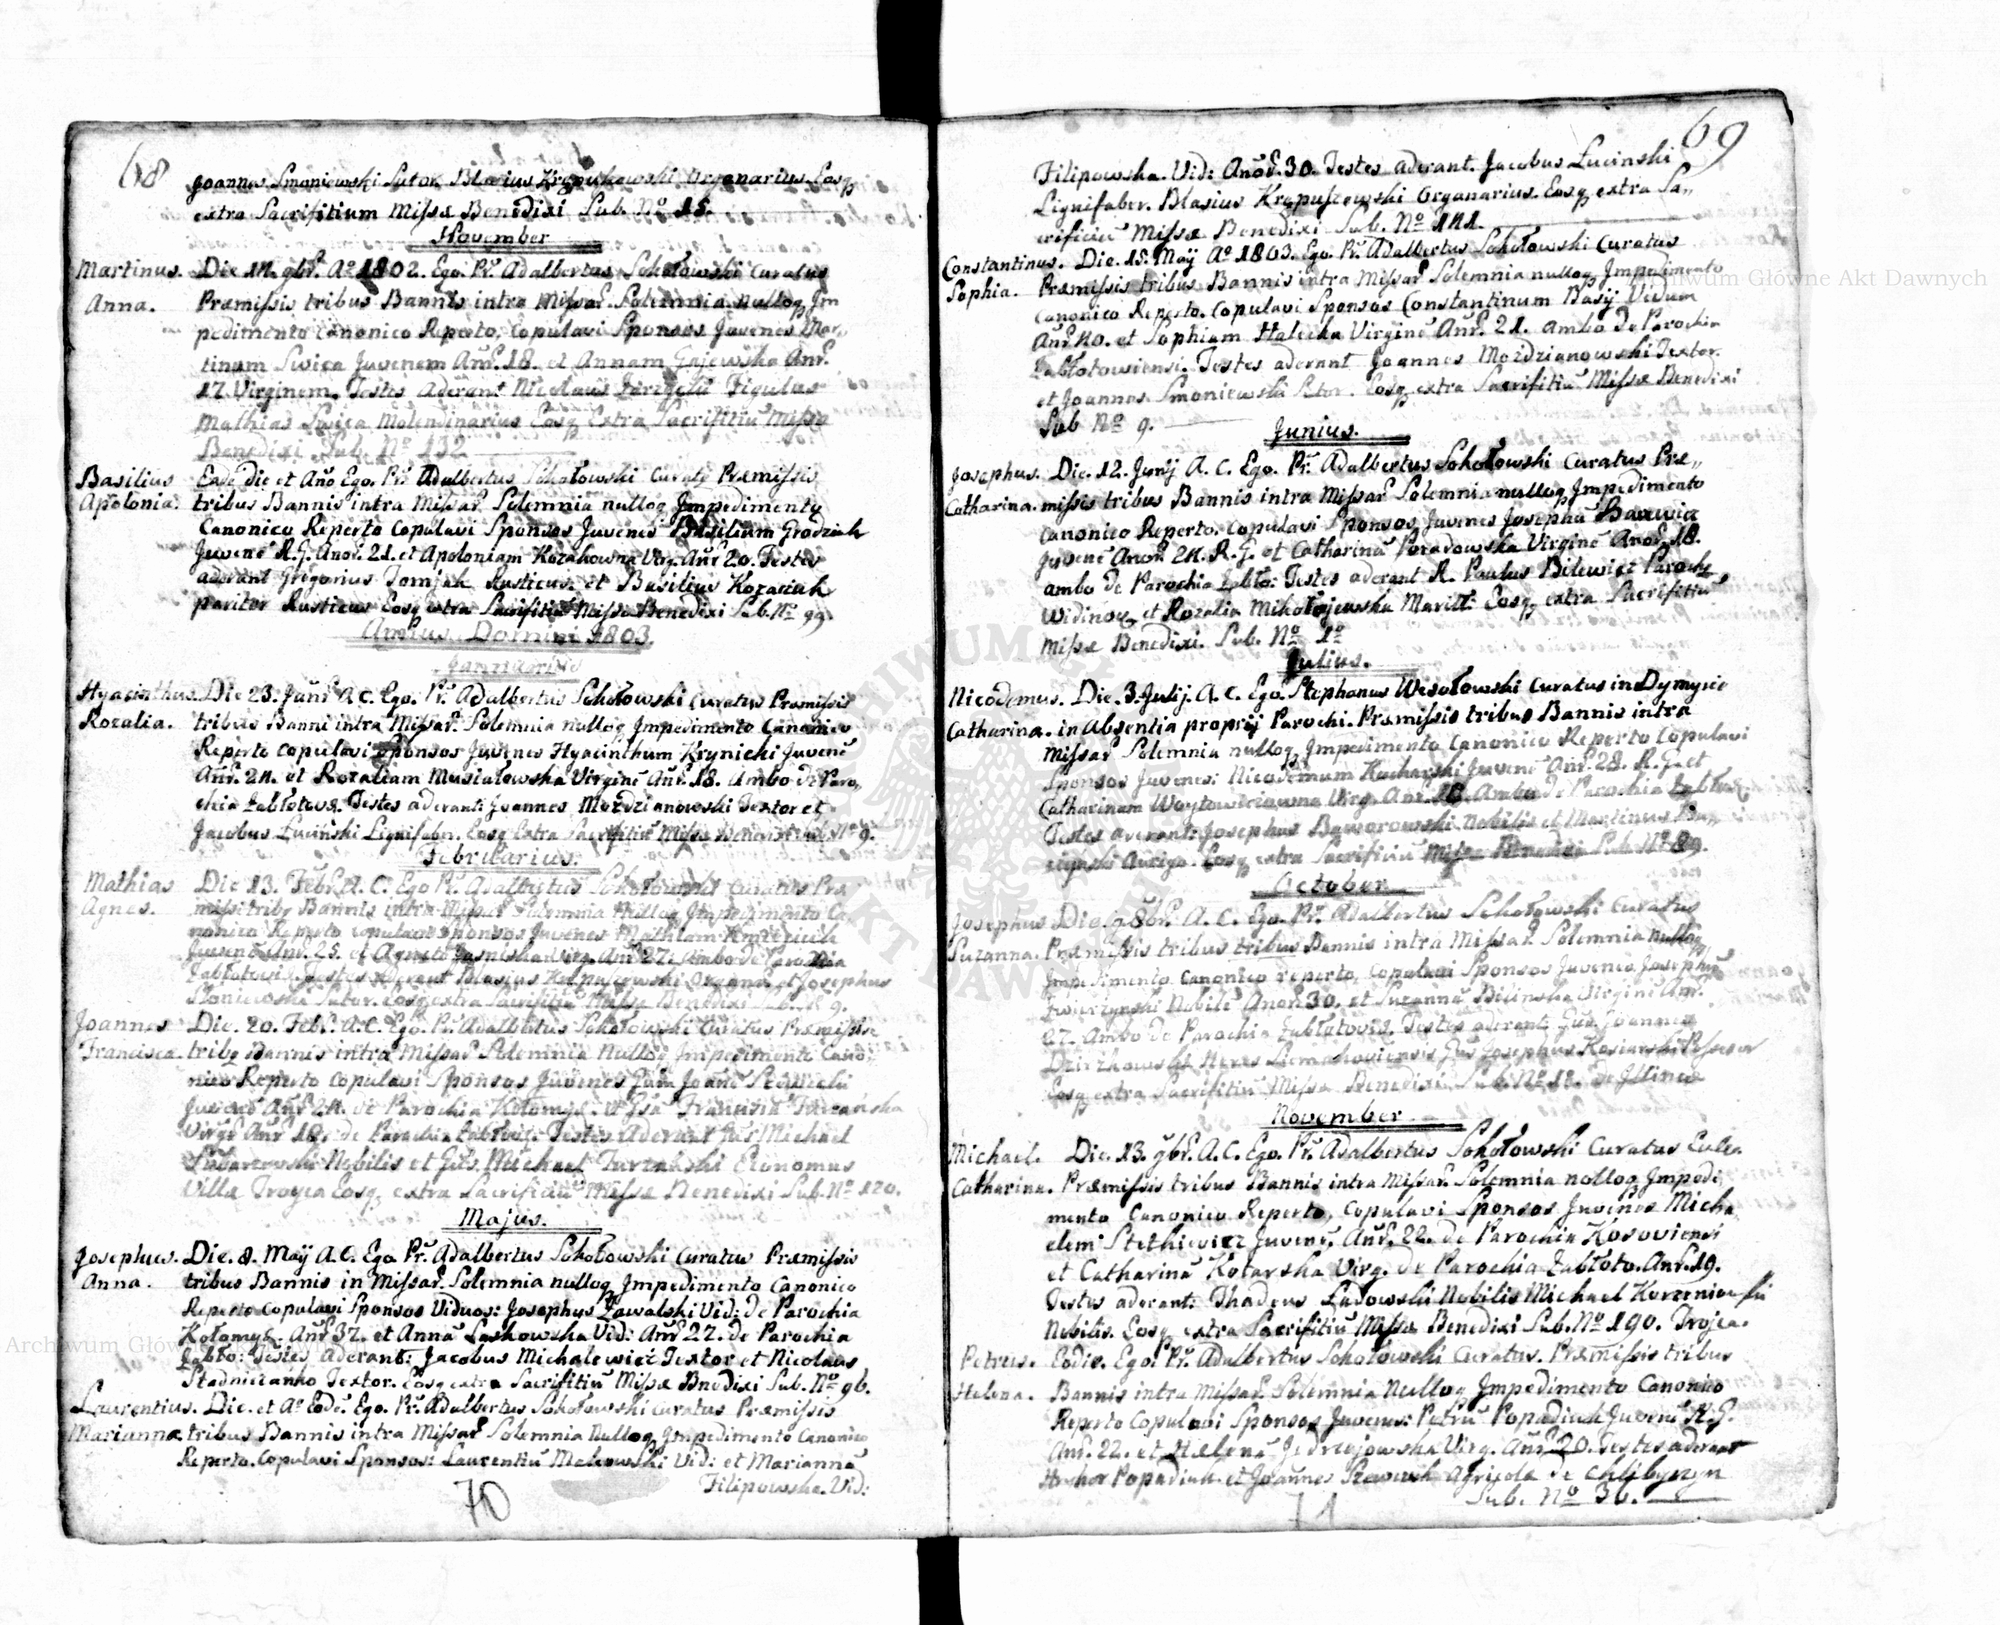 68
Joannes Smoniewski Sutor. Blasius Krępuszewski Organarius. Eosq
extra Sacrifitium Missæ Benedixi Sub. No 15.
November
Martinus. Die 14. 9br. Ao 1802. Ego. Pr. Adalbertus Sokołowski Curatus
Anna. Præmissis tribus Bannis intra Missar. Solemnia. nulloq Im
pedimento Canonico Reperto, Copulavi Sponsos Juvenes Mar,,
tinum Swica Juvenem Anr. 18. et Annam Gajewska Anr.
17. Virginem. Testes Aderant Nicolaus Figulus
Mathias Swica Molendinarius Eosq Extra Sacrifitiu Missæ
Benedixi Sub No 132
Basilius Eade die et Año Ego. Pr. Adalbertus Sokołowski Curatq Præmissis
Apolonia. tribus Bannis intra Missar. Solemnia nulloq Impedimento
Canonico Reperto Copulavi Sponsos Juvenes Basilium Grodziak
Juvenē R.G. Anor. 21. et Apoloniam Kozakowna Virg. Anr 20. Testes
aderant Gregorius Tomjak Rusticus. et Basilius Kozaciak
pariter Rusticus Eosq extra Sacrifitiū Missæ Benedixi Sub. No 99.
Annus Domini 1803.
Januarius
Hyacinthus. Die 23. Janr. A.C. Ego. Pr. Adalbertus Sokołowski Curatus Præmissis
Rozalia. tribus Banni intra Missar. Solemnia nulloq Impedimento Canonico
Reperto Copulavi Sponsos Juvenes Hyacinthum Krynicki Juvenē
Anr. 24. et Rozaliam Musiałowska Virginē Anr. 18. Ambo de Paro,
chia Zabłotov. Testes aderant: Joannes Mozdzianowski Textor et
Jacobus Łuciński Lignifabr. Eosq Extra Sacrifitiū Missæ Benedixi Sub No 9.
Februarius.
Mathias Die 13. Febr. A.C. Ego Pr. Adalbertus Sokołowski Curatus Præ
Agnes. missi tribq Bannis intra Missar Solemnia Nulloq Impedimento Ca
nonico Reperto copulavi Sponsos Juvenes Mathiam
Juvenē Anr. 25. et Virg. Anr 22. Ambo de Parochia
Zabłotovi. Testes aderant Blasius Organar. et Josephus
Sutor. Eosq extra Sacrifitiū Missæ Benedixi Sub. No 9.
Joannes Die. 20. Febr. A.C. Ego. Pr. Adalbertus Sokołowski Curatus Præmissis
Francisca. tribq Bannis intra Missar Solemnia Nulloq Impedimento Cano,
nico Reperto Copulavi Sponsos Juvenes
Juvenē Anr 24. de Parochia Kołomye. et
Virgē Anr 18. de Parochia Zabłotov: Testes Aderant Michael
Nobilis et Michael Turzański Economus
Villæ Trojca Eosq extra Sacrificiū Missæ Benedixi Sub. No 120.
Majus.
Josephus. Die. 8. Maij A.C. Ego Pr. Adalbertus Sokołowski Curatus Præmissis
Anna. tribus Bannis in Missar. Solemnia nulloq Impedimento Canonico
Reperto Copulavi Sponsos Viduos: Josephus Zawalski Vid: de Parochia
Kołomye. Anr 37. et Annā Laskowska Vid: Anr 22. de Parochia
Zabło: Testes Aderant: Jacobus Michalewicz Textor et Nicolaus
Stadniczanko Textor. Eosq extra Sacrifitiū Missæ Bnedixi Sub. No 96.
Laurentius. Die. et Ao Eode. Ego. Pr. Adalbertus Sokołowski Curatus Præmissis
Marianna tribus Bannis intra Missar Solemnia Nulloq Impedimento Canonico
Reperto. Copulavi Sponsos: Laurentiū Malewski Vid: et Mariannā
Filipowska. Vid:
70
69
Filipowska. Vid: Anor. 30. Testes aderant. Jacobus Łucinski
Lignifaber. Blasius Krępuszewski Organarius. Eosq extra Sa,,
crificiū Missæ Benedixi. Sub. No 141.
Constantinus. Die. 15. Maij Ao 1803. Ego. Pr. Adalbertus Sokołowski Curatus
Sophia. Præmissis tribus Bannis intra Missar Solemnia nulloq Impedimento
Canonico Reperto. Copulavi Sponsos Constantinum Basij Vidum
Anr. 40. et Sophiam Halecka Virginē Anr. 21. ambo de Parochia
Zabłotowiensi. Testes aderant Joannes Mozdzianowski Textor.
et Joannes Smoniewski Sutor. Eosq extra Sacrifitiū Missæ Benedixi
Sub No 9.
Junius.
Josephus. Die. 12. Junij A.C. Ego. Pr. Adalbertus Sokołowski Curatus Præ,,
Catharina. missis tribus Bannis intra Missar Solemnia nulloq Impedimento
Canonico Reperto. Copulavi Sponsos Juvenes Josephū
Juvenē Anor. 24. R.G. et Catharinā Poradowska Virginē Anor. 18.
ambo de Parochia Zabło: Testes aderant R. Paulus Bilewicz Parochq
Widinov. et Rozalia Mikołajewska Maritt: Eosq extra Sacrifitiū
Missæ Benedixi. Sub. No 1o
Julius.
Nicodemus. Die. 3. Julij. A.C. Ego. Stephanus Wesołowski Curatus in Dymycie
Catharina. in Absentia proprij Parochi. Præmissis tribus Bannis intra
Missar Solemnia nulloq Impedimento Canonico Reperto Copulavi
Sponsos Juvenes: Nicodemum Kucharski Juvenē Anr. 28. R.G. et
Catharinam Woytowiczowna Virg. Anr. 18. Ambo de Parochia Zabłot.
Testes aderant: Josephus Baworowski Nobilis et Martinus
Auriga. Eosq extra Sacrificiū Missæ Benedixi Sub No 89.
October
Josephus Die. 9 8br. A.C. Ego. Pr. Adalbertus Sokołowski Curatus
Suzanna. Præmissis tribus tribus Bannis intra Missar. Solemnia Nulloq
Impedimento Canonico reperto, Copulavi Sponsos Juvenes Josephū
Zwierzynski Nobilē Anor. 30. et Suzannā Bilinska Virginē Anr.
27. Ambo de Parochia Zabłotovi. Testes aderant Joannes
Heres Josephus Kosiarski Possesor
Eosq extra Sacrifitiū Missæ Benedixi Sub. No 18. de Illince
November
Michael. Die. 13. 9br. A.C. Ego. Pr. Adalbertus Sokołowski Curatus
Catharina. Præmissis tribus Bannis intra Missar. Solemnia nulloq Impedi
mento Canonico Reperto, Copulavi Sponsos Juvenes Micha
elem Stethiewicz Juvenē. Anr. 22. de Parochia Kosoviensi
et Catharinā Kotarska Virg. de Parochia Zabłoto. Anr. 19.
Testes aderant: Thadeus Ladowski Nobilis Michael Korzeniowski
Nobilis. Eosq extra Sacrifitiū Missæ Benedixi Sub. No 190. Trojca.
Petrus. Eodie. Ego. Pr. Adalbertus Sokołowski Curatus. Præmissis tribus
Helena. Bannis intra Missar. Solemnia Nulloq Impedimento Canonico
Reperto Copulavi Sponsos Juvenes: Petrū Popadiuk Juvenē R.G.
Anr. 22. et Helenā Jedrzejowska Virg. Anr. 20. Testes aderant
Popadiuk. et Joannes Szewczuk Agricola de Chlibyczyn
Sub. No 36.
71
Archiwum Główne Akt Dawnych
Archiwum Główne Akt Dawnych
ARCHIWUM GŁÓWNE AKT DAWNYCH